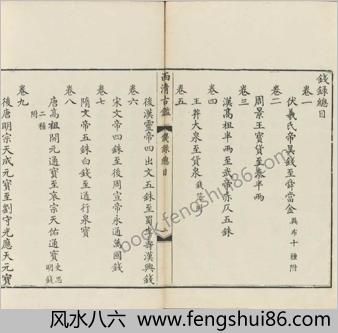 錢錄總目
卷一
伏羲氏帝昊錢至舜當金 異布十種附
卷二
周景王寶貨至秦半兩
卷三
漢高祖半兩至武帝赤仄五銖
卷四
王莽大泉至貨泉
卷五
西清古鑑 錢錄總目
後漢靈帝四出文五銖至蜀李壽漢興錢
卷六
宋文帝四銖至後周宣帝永通萬國錢
卷七
隋文帝五銖白錢至通行泉寶
卷八
唐高祖開元通寶至哀宗天佑通寶 史思明錢
二種附
卷九
後唐明宗天成元寶至劉守光應天元寶
book.fengshui86.com
风水八六 www.fengshui86.com